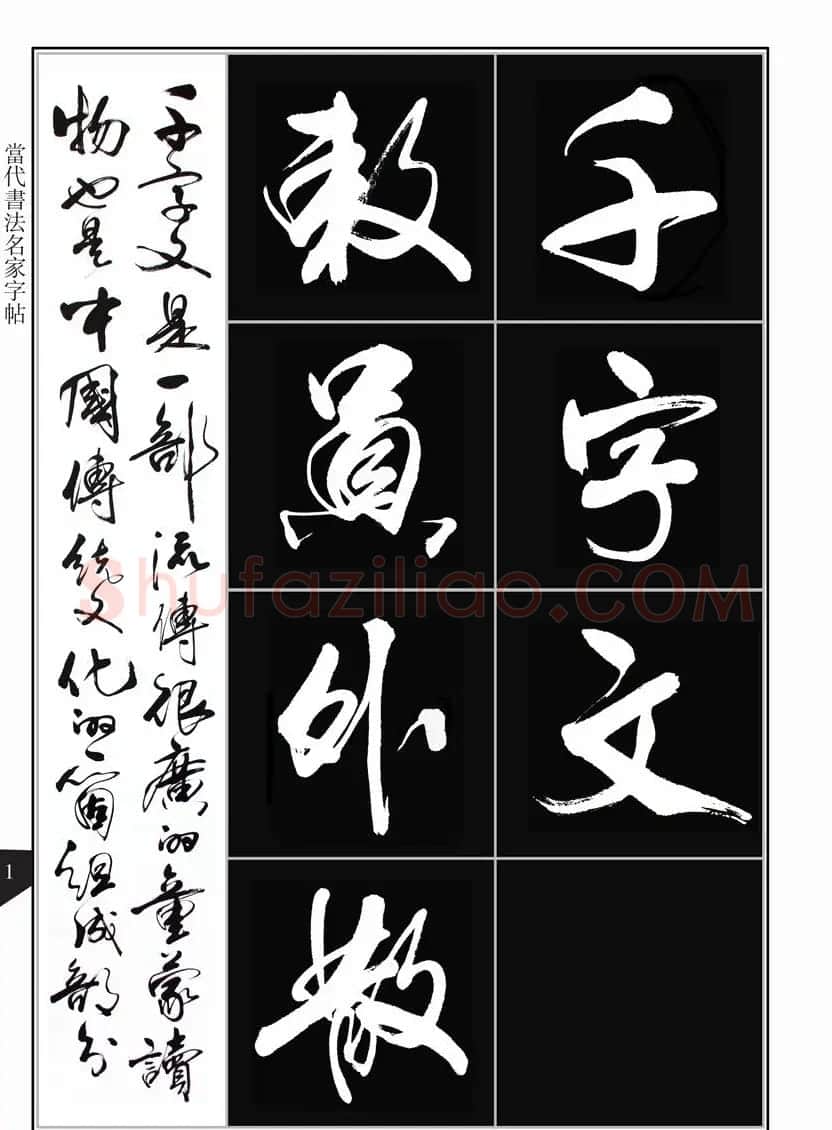 千字文
敕員外散
千字文是一部流傳很廣的童蒙讀
物也是中國傳統文化的一箇組成部分
當代書法名家字帖
1
Shufaziliao.COM